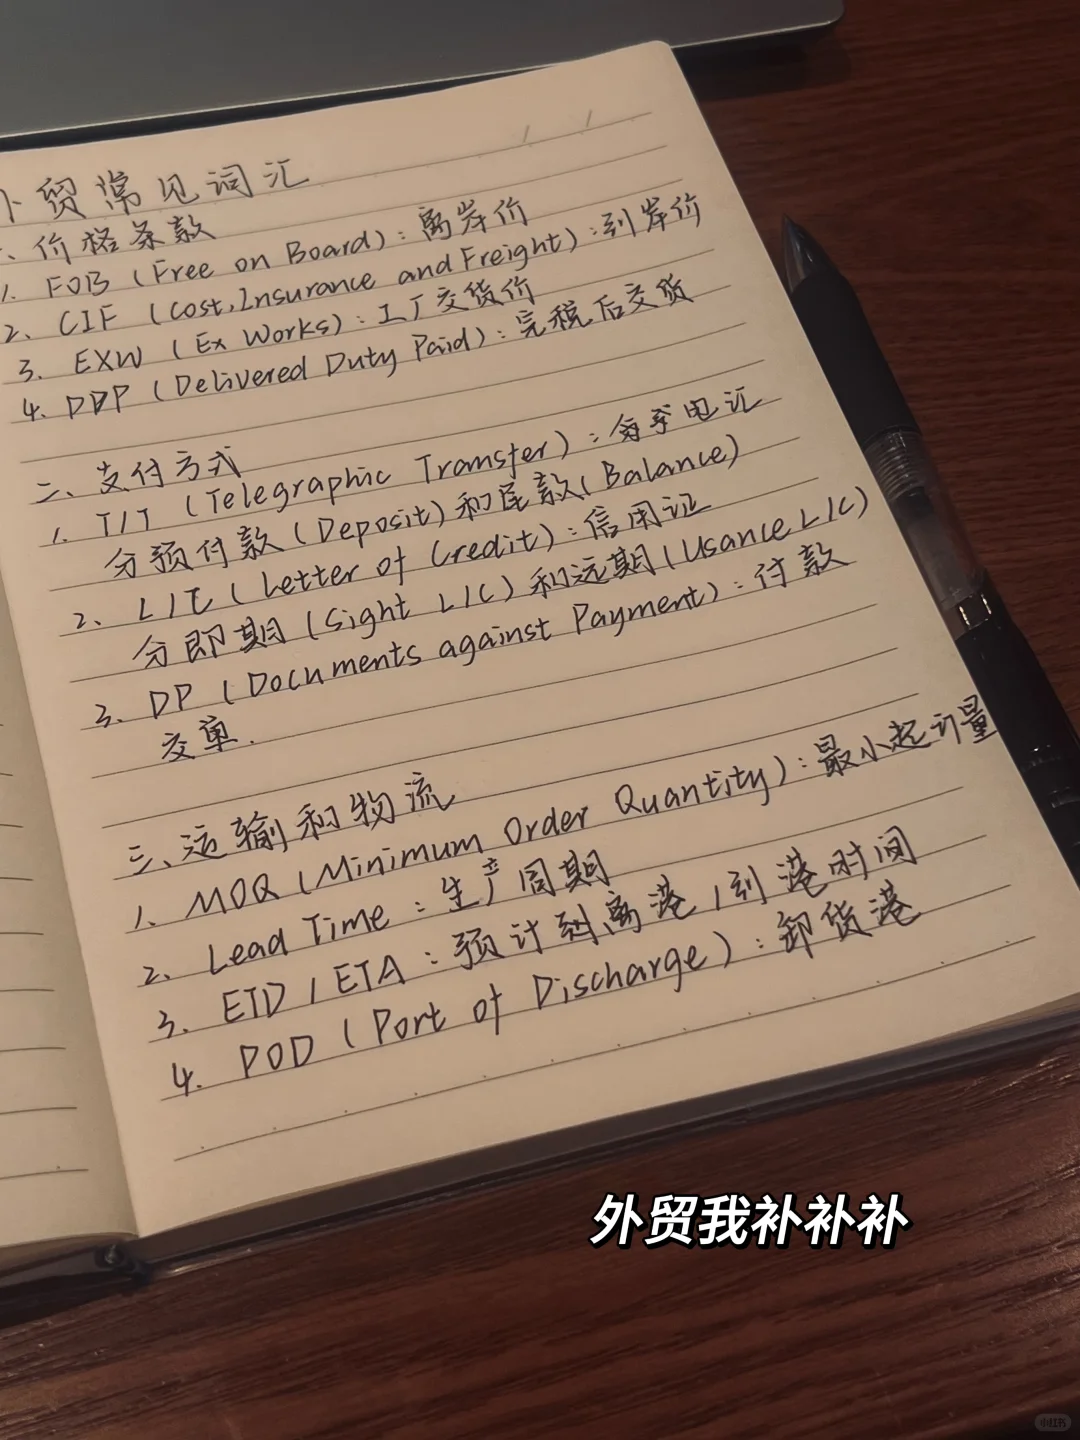 外贸常见词汇
一、价格条款
1. FOB (Free on Board)：离岸价
2. CIF (Cost,Insurance and Freight)：到岸价
3. EXW (Ex Works)：工厂交货价
4. DDP (Delivered Duty Paid)：完税后交货
二、支付方式
1. T/T (Telegraphic Transfer)：电汇
分预付款(Deposit)和尾款(Balance)
2. L/C (Letter of Credit)：信用证
分即期(Sight L/C)和远期(Usance L/C)
3. DP (Documents against Payment)：付款
交单.
三、运输和物流
1. MOQ (Minimum Order Quantity)：最小起订量
2. Lead Time：生产周期
3. ETD/ETA：预计到离港/到港时间
4. POD (Port of Discharge)：卸货港
外贸我补补补
小红书